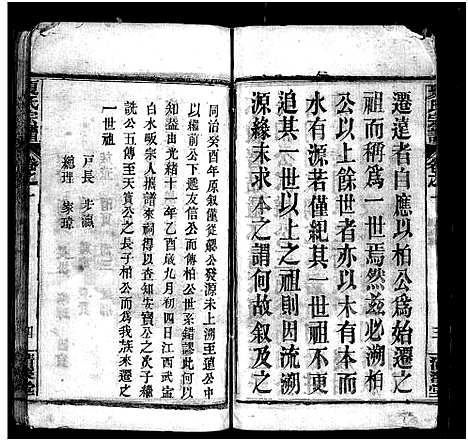 遷遠者自應以柏公爲始遷之
祖而稱爲一世焉然亥必溯柏
公以上餘世者亦以木有本
水有源若僅紀其一世而不
追其一世以上之祖則是
源緣末求本之謂何故叙及之
同治癸酉年原叙僅從嚴公發源未上溯至遠公中
以縱前公下遞友信公而俱係柏公世系錯謬此何以
知葢由光緒十一年乙酉歲九月初四日江西武寍
白水畈宗人携譜來祠得以查知安寶公之次子縱
洗公五傳至天貴公之長子柏公而爲本族來遷之
一世祖
戸長
總理
夏氏宗譜